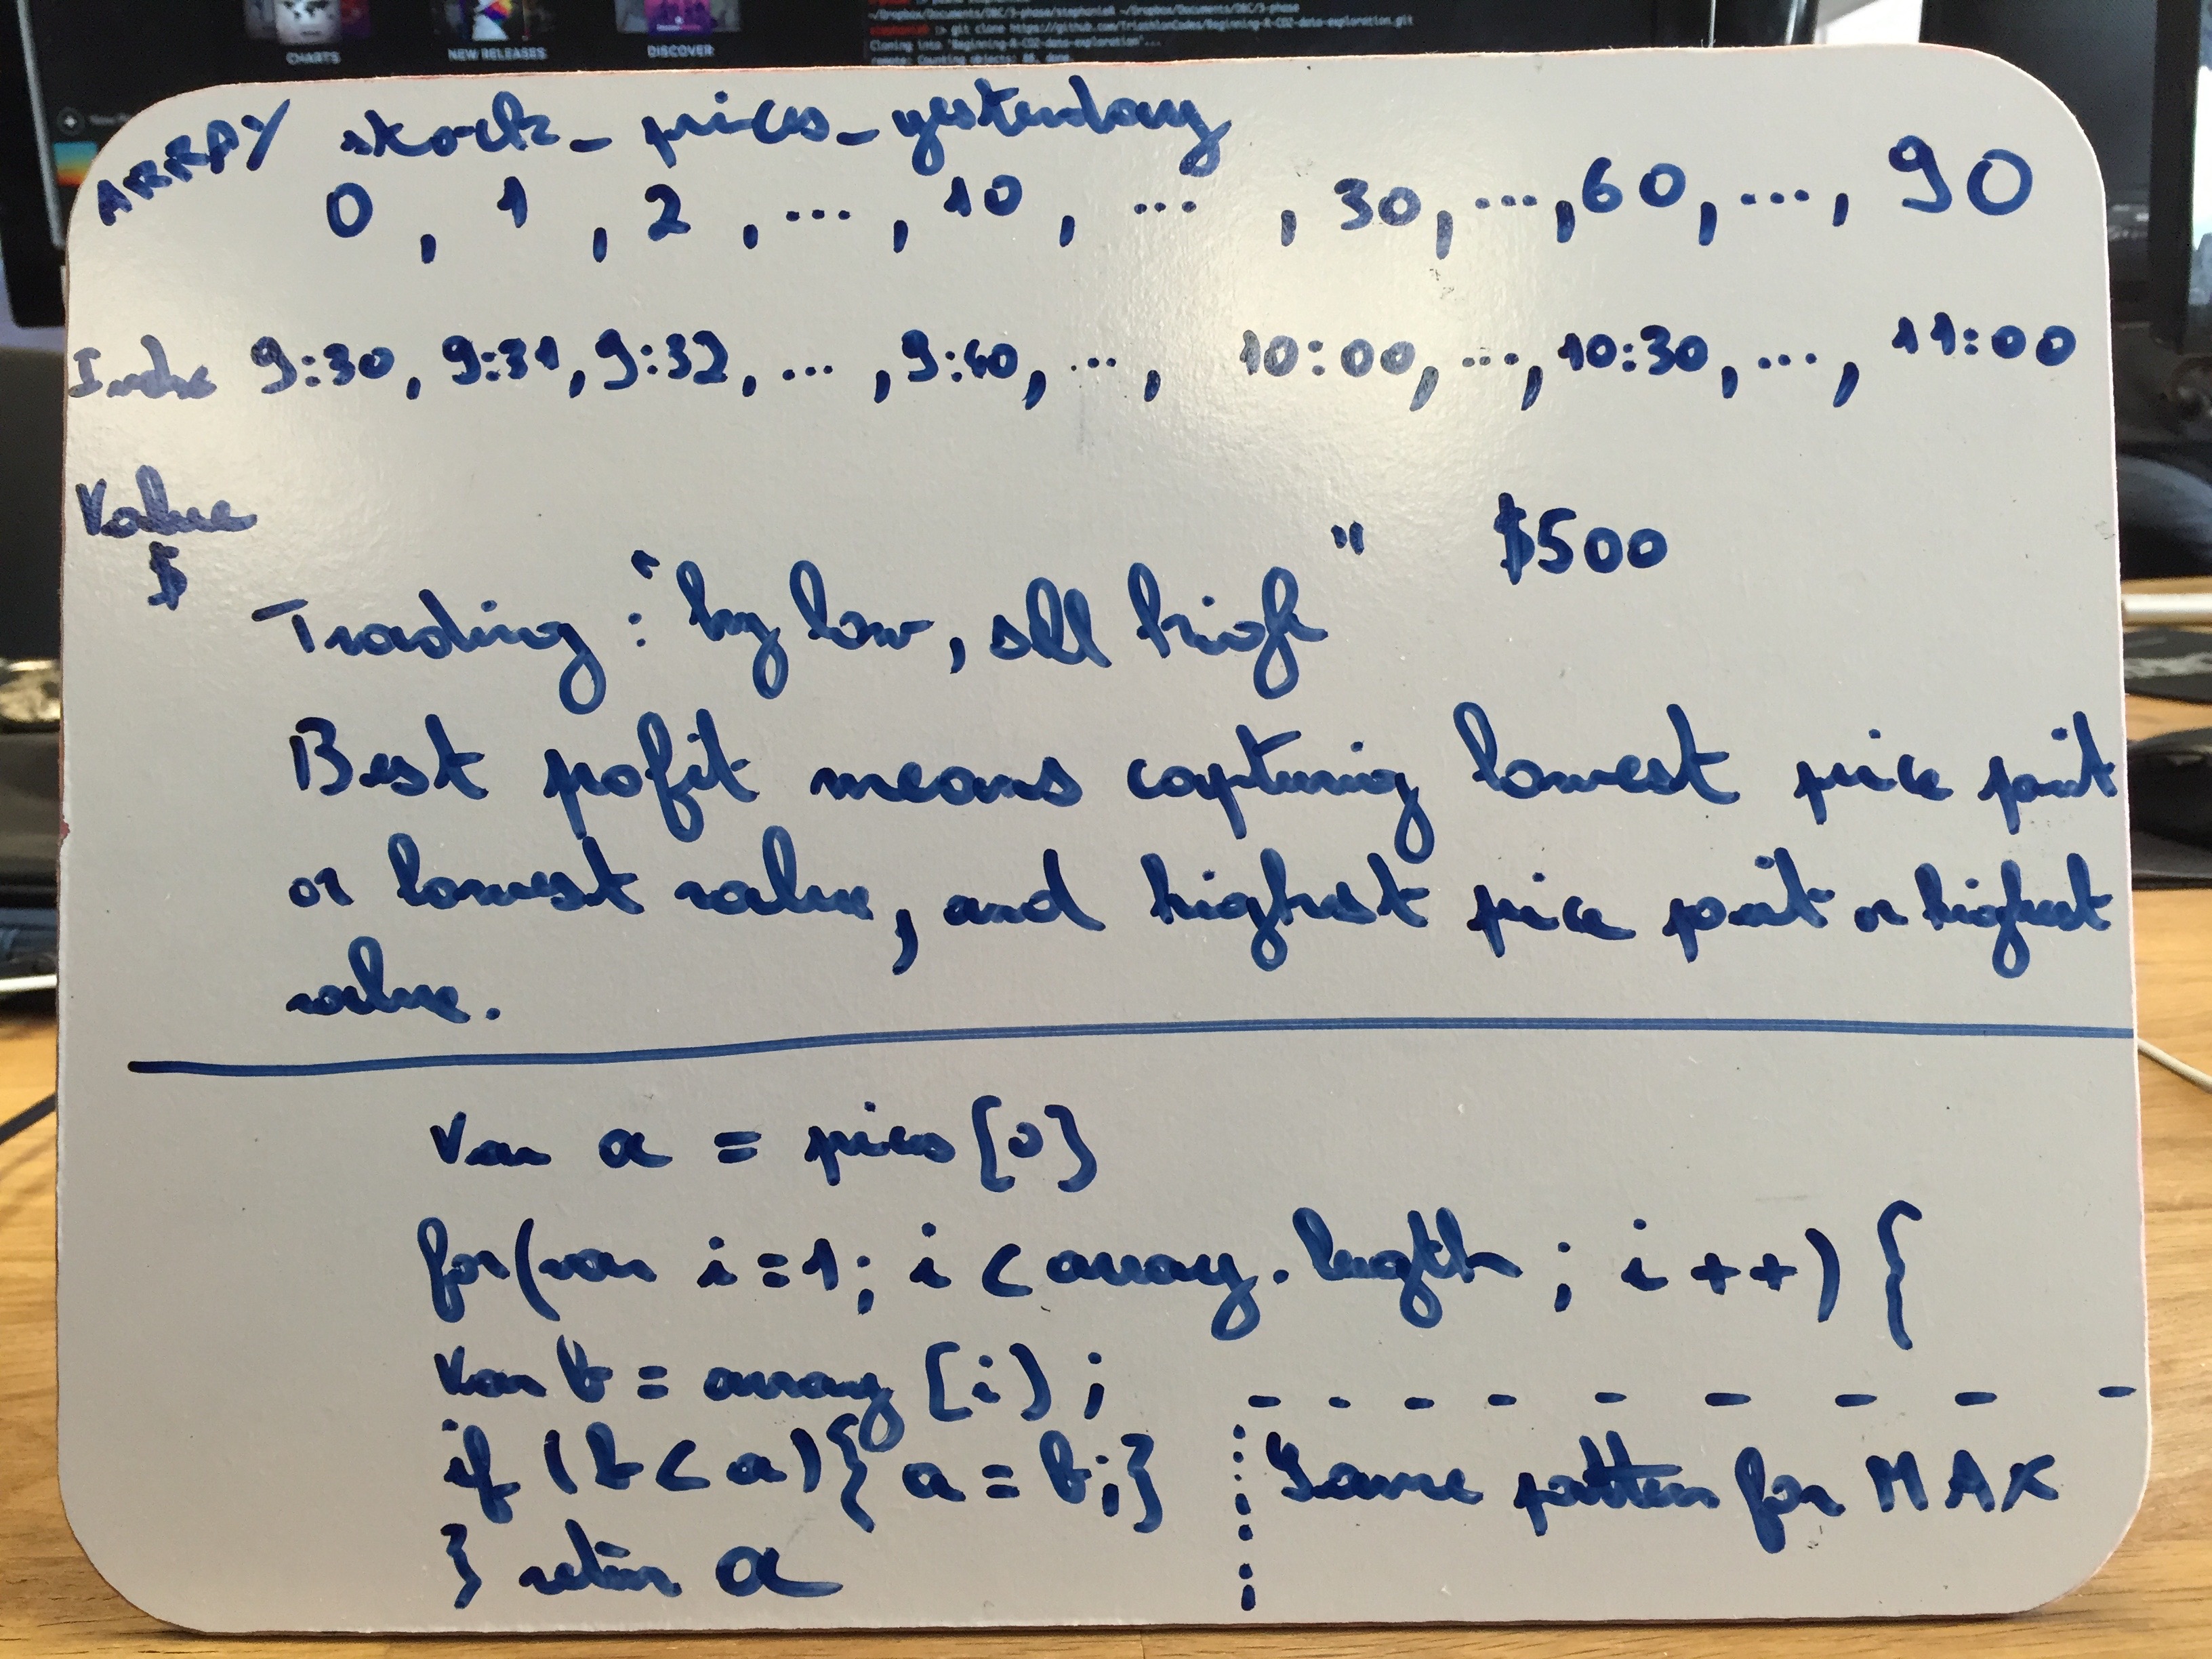 CHARTS
NEW RELEASES
DISCOVER
~/Dropbox/Documents/DBC/3-phase/stephanieR ~/Dropbox/Documents/DBC/3-phase
git clone https://github.com/TriathlonCodes/Beginning-R-CO2-data-exploration.git
Cloning into 'Beginning-R-CO2-data-exploration'...
remote: Counting objects: 86, done.
ARRAY stock_prices_yesterday
0, 1, 2, ..., 10, ... , 30, ..., 60, ..., 90
Index 9:30, 9:31, 9:32, ..., 9:40, ..., 10:00, ..., 10:30, ..., 11:00
Value
$
$500
Trading: "by low, sell high"
Best profit means capturing lowest price point
or lowest value, and highest price point or highest
value.
var a = prices[0]
for(var i=1; i < array.length ; i++) {
var b = array [i] ;
if (b < a) { a = b; }
} return a
Same pattern for MAX